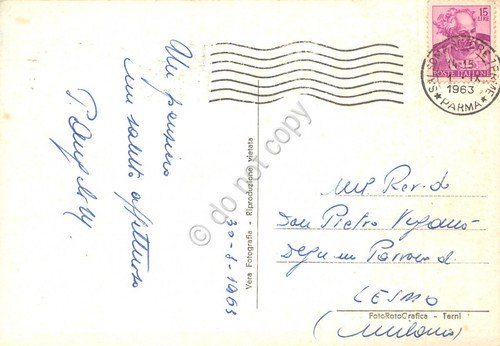 Un pensiero
un saluto affettuoso
30-8-1963
Vera Fotografia - Riproduzione vietata
15
LIRE
POSTE ITALIANE
14-15
1963
★ PARMA ★
Mto Rev. do
Don Pietro Viganò
Degn. mo Parroco di
LESMO
(Milano)
FotoRotoGrafica - Terni
do not copy